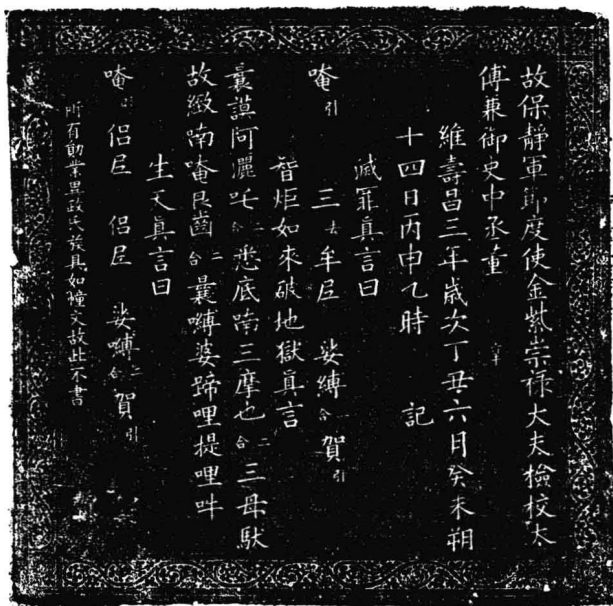 故保靜軍節度使金紫崇祿大夫檢校太
傅兼御史中丞董
維壽昌三年歲次丁丑六月癸未朔
十四日丙申乙時 記
滅罪真言曰
唵引 三去牟𡰱 娑縛二合賀引
智炬如來破地獄真言
曩謨阿灑吒二合悉底喃三摩也二合三母馱
故緻喃唵𡰱齒二合曩嚩婆蹄哩提哩吽
生天真言曰
唵引 侶𡰱 侶𡰱 娑嚩二合賀引
所有勳業異政氏族具如幢文故此不書